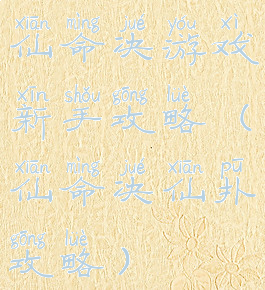 xiān mìng jué yóu xì
仙命决游戏
xīn shǒu gōng lüè
新手攻略（
xiān mìng jué xiān pū
仙命决仙扑
gōng lüè
攻略）